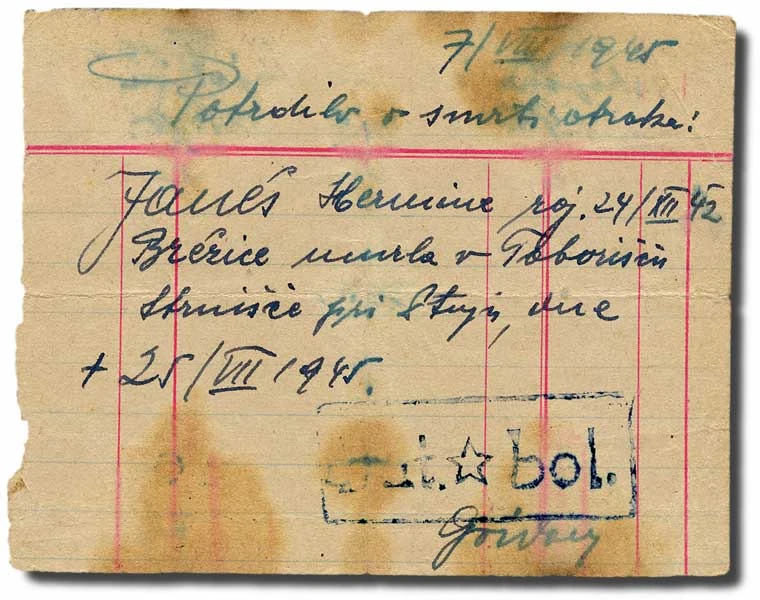 7/VIII 1945
Potrdilo o smrti otroka!
Janés Hermine roj. 24/XII 42
Brežice umrla v Taborišču
Strnišče pri Ptuju, dne
+ 25/VII 1945.
☆ bol.